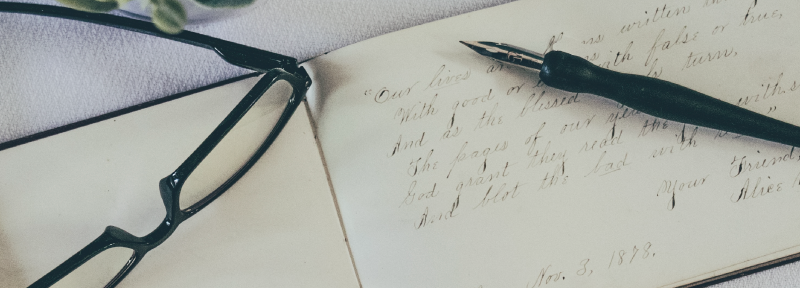 "Our lives are written in
With good or with false or true,
And as the blessed turn,
The pages of our years
God grant they read the with s
And blot the bad with "
Your Friend,
Alice
Nov. 3, 1878.